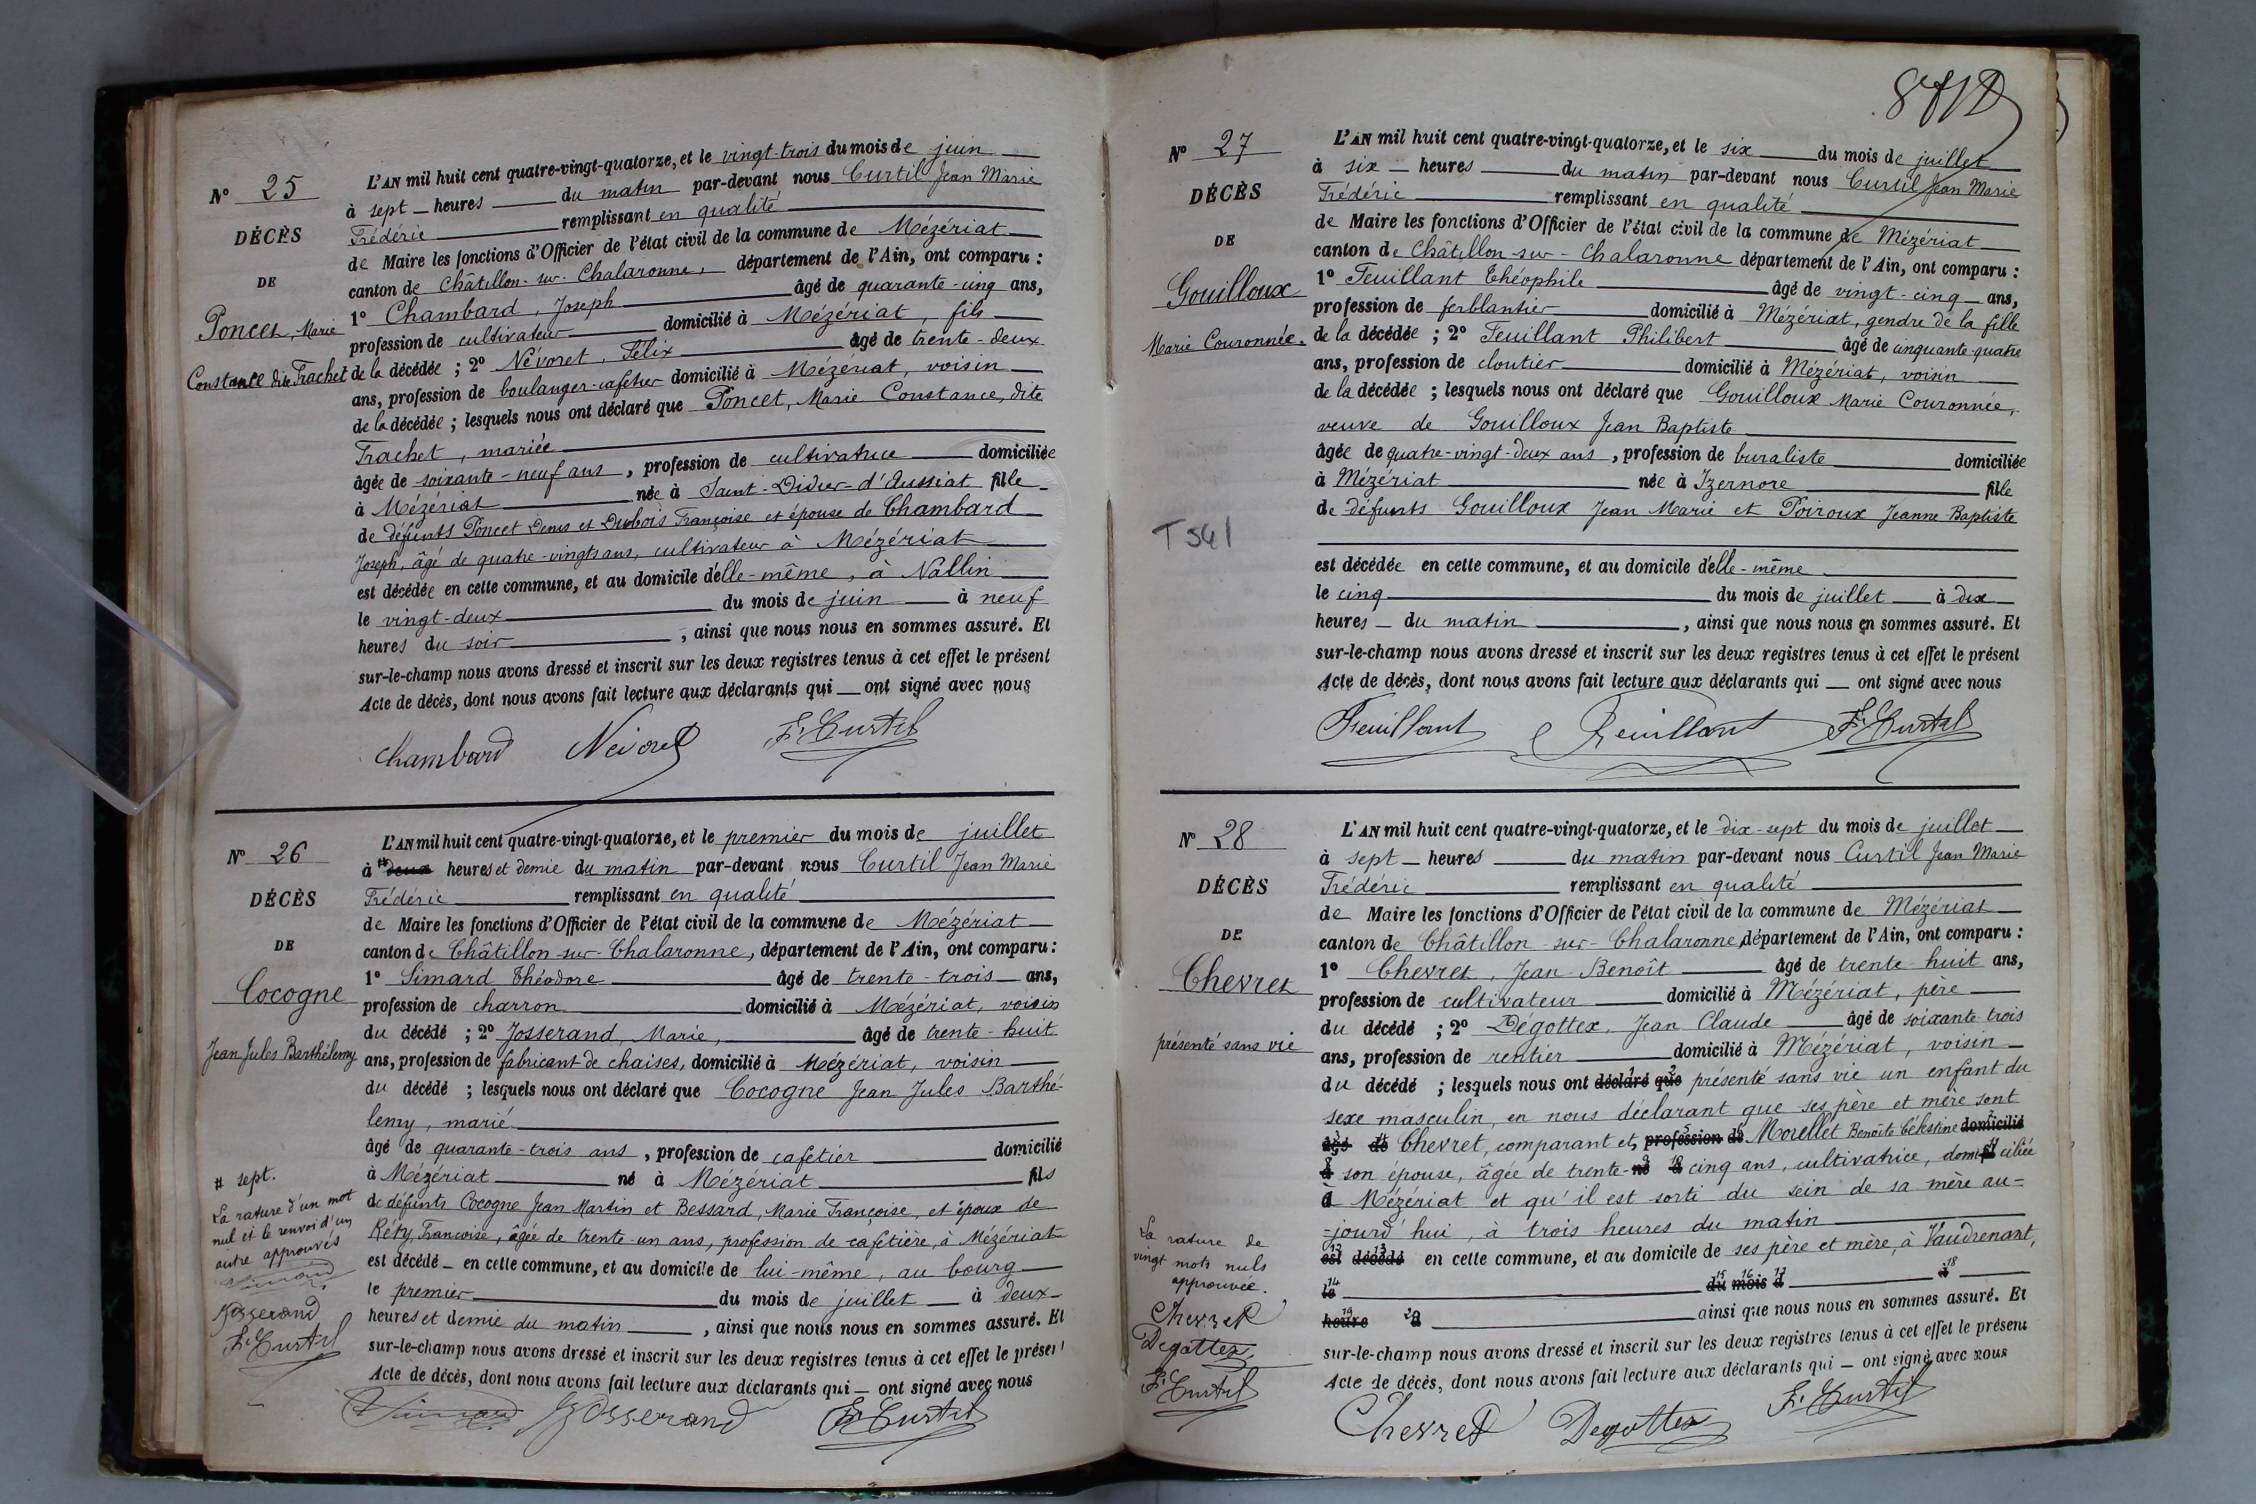 N° 25
DÉCÈS
DE
Poncet, Marie
Constance dite Trachet
L'AN mil huit cent quatre-vingt-quatorze, et le vingt-trois du mois de juin
à sept heures du matin par-devant nous Curtil Jean Marie
Frédéric remplissant en qualité
de Maire les fonctions d'Officier de l'état civil de la commune de Mézériat
canton de Châtillon-sur-Chalaronne, département de l'Ain, ont comparu :
1° Chambard, Joseph âgé de quarante-cinq ans,
profession de cultivateur domicilié à Mézériat, fils
de la décédée ; 2° Névoret, Félix âgé de trente-deux
ans, profession de boulanger-cafetier domicilié à Mézériat, voisin
de la décédée ; lesquels nous ont déclaré que Poncet, Marie Constance, dite
Trachet, mariée
âgée de soixante-neuf ans, profession de cultivatrice domiciliée
à Mézériat née à Saint-Didier-d'Aussiat fille
de défunts Poncet Denis et Dubois Françoise et épouse de Chambard
Joseph, âgé de quatre-vingts ans, cultivateur à Mézériat
est décédée en cette commune, et au domicile d'elle-même, à Nallin
le vingt-deux du mois de juin à neuf
heures du soir, ainsi que nous nous en sommes assuré. Et
sur-le-champ nous avons dressé et inscrit sur les deux registres tenus à cet effet le présent
Acte de décès, dont nous avons fait lecture aux déclarants qui ont signé avec nous
Chambard Névoret F. Curtil
N° 26
DÉCÈS
DE
Cocogne
Jean Jules Barthélemy
L'AN mil huit cent quatre-vingt-quatorze, et le premier du mois de juillet
à # deux heures et demie du matin par-devant nous Curtil Jean Marie
Frédéric remplissant en qualité
de Maire les fonctions d'Officier de l'état civil de la commune de Mézériat
canton de Châtillon-sur-Chalaronne, département de l'Ain, ont comparu :
1° Simard Théodore âgé de trente-trois ans,
profession de charron domicilié à Mézériat, voisin
du décédé ; 2° Josserand, Marie, âgé de trente-huit
ans, profession de fabricant de chaises, domicilié à Mézériat, voisin
du décédé ; lesquels nous ont déclaré que Cocogne Jean Jules Barthé-
lemy, marié
âgé de quarante-trois ans, profession de cafetier domicilié
à Mézériat né à Mézériat fils
de défunts Cocogne Jean Martin et Bessard, Marie Françoise, et époux de
Réty, Françoise, âgée de trente-un ans, profession de cafetière, à Mézériat
est décédé en cette commune, et au domicile de lui-même, au bourg
le premier du mois de juillet à deux
heures et demie du matin, ainsi que nous nous en sommes assuré. Et
sur-le-champ nous avons dressé et inscrit sur les deux registres tenus à cet effet le présent
Acte de décès, dont nous avons fait lecture aux déclarants qui ont signé avec nous
# sept.
La rature d'un mot
nul et le renvoi d'un
autre approuvés
Simard
Josserand
F. Curtil
Simard Josserand F. Curtil
N° 27
DÉCÈS
DE
Gouilloux
Marie Couronnée.
T541
L'AN mil huit cent quatre-vingt-quatorze, et le six du mois de juillet
à six heures du matin par-devant nous Curtil Jean Marie
Frédéric remplissant en qualité
de Maire les fonctions d'Officier de l'état civil de la commune de Mézériat
canton de Châtillon-sur-Chalaronne département de l'Ain, ont comparu :
1° Feuillant Théophile âgé de vingt-cinq ans,
profession de ferblantier domicilié à Mézériat, gendre de la fille
de la décédée ; 2° Feuillant Philibert âgé de cinquante-quatre
ans, profession de cloutier domicilié à Mézériat, voisin
de la décédée ; lesquels nous ont déclaré que Gouilloux Marie Couronnée,
veuve de Gouilloux Jean Baptiste
âgée de quatre-vingt-deux ans, profession de buraliste domiciliée
à Mézériat née à Izernore fille
de défunts Gouilloux Jean Marie et Poiroux Jeanne Baptiste
est décédée en cette commune, et au domicile d'elle-même
le cinq du mois de juillet à dix
heures du matin, ainsi que nous nous en sommes assuré. Et
sur-le-champ nous avons dressé et inscrit sur les deux registres tenus à cet effet le présent
Acte de décès, dont nous avons fait lecture aux déclarants qui ont signé avec nous
Feuillant Feuillant F. Curtil
N° 28
DÉCÈS
DE
Chevret
présenté sans vie
L'AN mil huit cent quatre-vingt-quatorze, et le dix-sept du mois de juillet
à sept heures du matin par-devant nous Curtil Jean Marie
Frédéric remplissant en qualité
de Maire les fonctions d'Officier de l'état civil de la commune de Mézériat
canton de Châtillon-sur-Chalaronne, département de l'Ain, ont comparu :
1° Chevret, Jean-Benoît âgé de trente-huit ans,
profession de cultivateur domicilié à Mézériat, père
du décédé ; 2° Dégottex, Jean Claude âgé de soixante-trois
ans, profession de rentier domicilié à Mézériat, voisin
du décédé ; lesquels nous ont déclaré que présenté sans vie un enfant du
sexe masculin, en nous déclarant que ses père et mère sont
âgé de Chevret, comparant et, profession de Morellet Benoîte Célestine domicilié
à son épouse, âgée de trente-né à cinq ans, cultivatrice, domi fil ciliée
à Mézériat et qu'il est sorti du sein de sa mère au-
=jourd'hui, à trois heures du matin
est décédé en cette commune, et au domicile de ses père et mère, à Vaudrenart,
le du mois d à
heure d ainsi que nous nous en sommes assuré. Et
sur-le-champ nous avons dressé et inscrit sur les deux registres tenus à cet effet le présent
Acte de décès, dont nous avons fait lecture aux déclarants qui ont signé avec nous
La rature de
vingt mots nuls
approuvée.
Chevret
Degottex
F. Curtil
Chevret Degottex F. Curtil